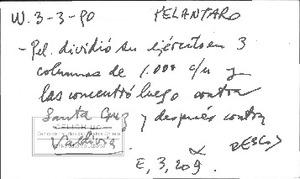 W.3-3-90 PELANTARO
- Pel. dividió su ejército en 3
columnas de 1.000 c/u y
las concentró luego contra
Santa Cruz y después contra
Valdivia.
E, 3, 209.